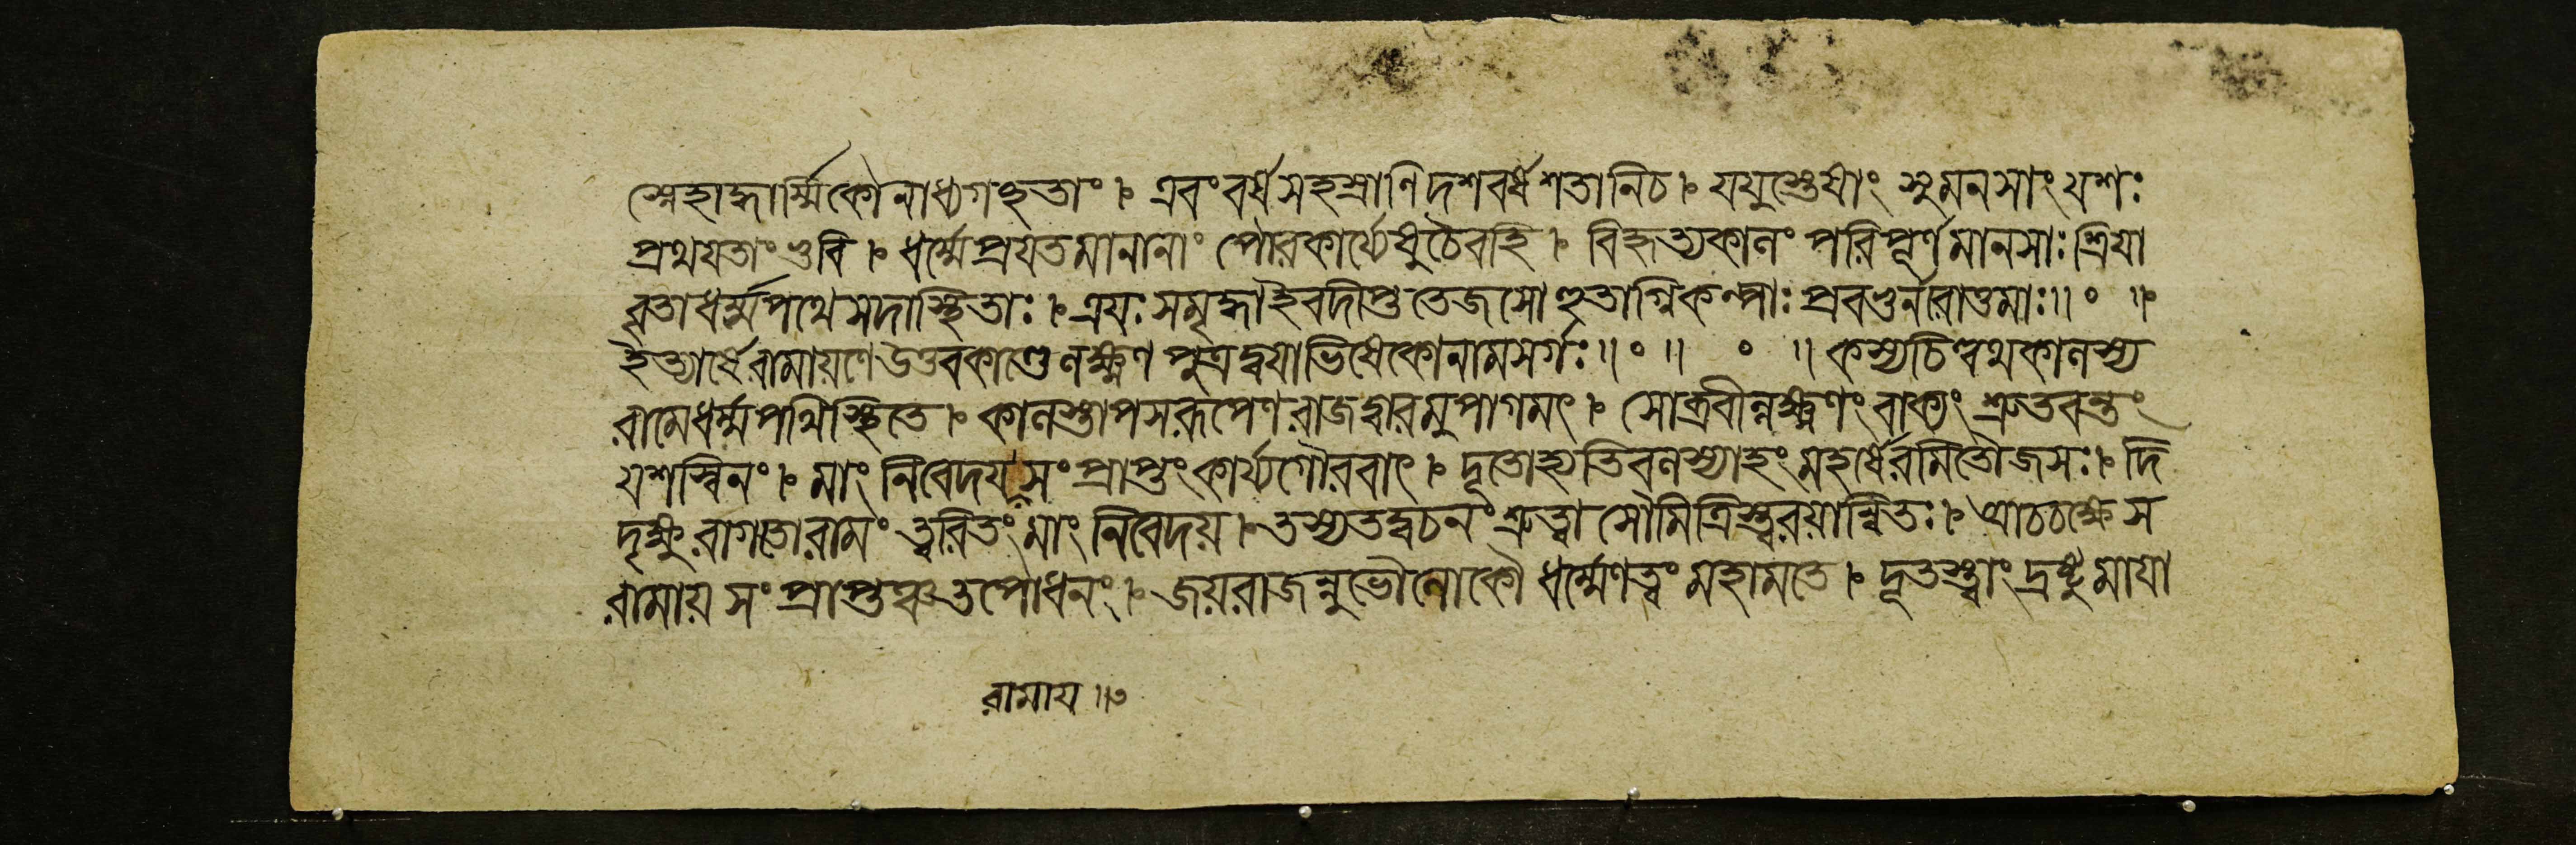 স্নেহাদ্ধার্ম্মিকৌনাধ্যগচ্ছতাং। এবংবর্ষসহস্রাণিদশবর্ষশতানিচ। যযুস্তেষাং সুমনসাংযশঃ
প্রথযতাংভুবি। ধর্ম্মেপ্রযতমানানাং পৌরকার্য্যেষুচৈবহি। বিহৃত্যকালং পরিপূর্ণমানসাঃ শ্রিযা
বৃতাধর্ম্মপথেসদাস্থিতাঃ। ত্রযঃসমৃদ্ধাইবদীপ্ততেজসোহুতাগ্নিকল্পাঃ প্রবভুর্নরোত্তমাঃ॥০॥
ইত্যার্ষেরামায়ণেউত্তরকাণ্ডেলক্ষ্মণপুত্রদ্বযাভিষেকোনামসর্গঃ॥০॥ ০ ॥কস্যচিত্ত্বথকালস্য
রামেধর্ম্মপথিস্থিতে। কালস্তাপসরূপেণরাজদ্বারমুপাগমৎ। সোব্রবীল্লক্ষ্মণংবাক্যং শ্রুতবন্তং
যশস্বিনং। মাং নিবেদয় সংপ্রাপ্তংকার্য্যগৌরবাৎ। দূতোহ্যতিবলস্যাহং মহর্ষেরমিতৌজসঃ। দি
দৃক্ষুরাগতোরামং ত্বরিতংমাং নিবেদয়। তস্যতদ্বচনং শ্রুত্বা সৌমিত্রিস্ত্বরয়ান্বিতঃ। আচচক্ষেস
রামায় সংপ্রাপ্তঞ্চতপোধনং। জয়রাজন্নুভৌলোকৌ ধর্ম্মেণত্বং মহামতে। দূতস্ত্বাং দ্রষ্টুমাযা
রামায॥